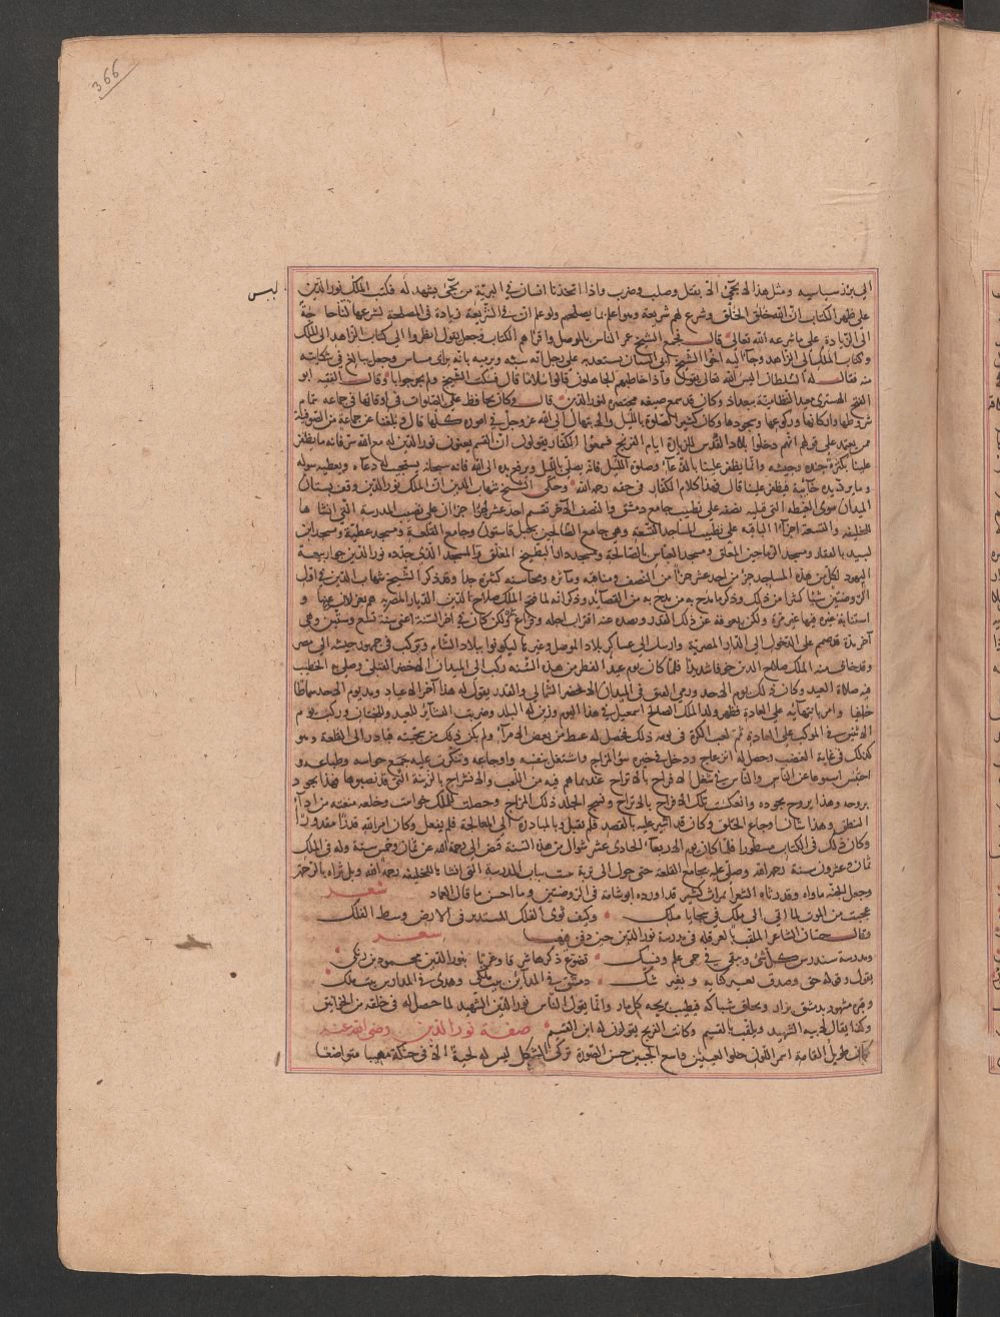 366
ليس
الى نوع سياسة ومثل هذا لا يجئ الا بقتل وصلب وضرب واذا اخذنا انسان في البرية من يجئ يشهد له فكتب الملك نور الدين
على ظهر الكتاب ان الله خلق الخلق وشرع لهم شريعة وهو اعلم بما يصلحهم ولو علم ان في الشريعة زيادة في المصلحة لشرعها لنا حاجة
الى الزيادة على ما شرعه الله تعالى قال فجمع الشيخ عمر الناس بالموصل واقراهم الكتاب وجعل يقول انظروا الى كتاب الزاهد الى الملك
وكتاب الملك الى الزاهد وجاء اليه اخو الشيخ ابي البيان يستعديه على رجل انه سبه ورماه بانه يرائي وجعل يبالغ في شكايته
منه فقال له السلطان اليس الله تعالى يقول واذا خاطبهم الجاهلون قالوا سلاما قال فسكت الشيخ ولم يحر جوابا وقال الفقيه ابو
الفتح معيد النظامية ببغداد وكان قد جمع سيرة مختصرة لنور الدين قال وكان يحافظ على الصلوات في اوقاتها في جماعة بتمام
شروطها واركانها وركوعها وسجودها وكان كثير الصلاة بالليل والابتهال الى الله عز وجل في اموره كلها قال وبلغنا عن جماعة من الصوفية
ممن يعتمد على قولهم انهم دخلوا بلاد القدس للزيارة ايام الفرنج فسمعوا الكفار يقولون ان القسيم يعنون نور الدين له مع الله سر فانه ما يظفر
علينا بكثرة جنده وجيشه وانما يظفر علينا بالدعاء وصلاة الليل فانه يصلي بالليل ويرفع يده الى الله فانه سبحانه يستجيب له دعاءه ويعطيه سوله
وما يرد يده خائبة فيظفر علينا قال فهذا كلام الكفار في حقه رحمه الله وحكى الشيخ شهاب الدين ان الملك نور الدين وقف بستان
الميدان سوى الغيضة التي قبليه نصفه على تطييب جامع دمشق والنصف الآخر يقسم احد عشر جزءا جزآن على تطييب المدرسة التي انشاها
للحنفية والتسعة اجزاء الباقية على تطييب المساجد التسعة وهي جامع الصالحين بجبل قاسيون وجامع القلعة ومسجد عطية ومسجد ابن
لبيد بالعقار ومسجد الرماحين المعلق ومسجد العباس بالصالحية ومسجد دار البطيخ المعلق والمسجد الذي جدده نور الدين جوار بيعة
اليهود لكل من هذه المساجد جزء من احد عشر جزءا من النصف ومناقبه ومآثره ومحاسنه كثيرة جدا وقد ذكر الشيخ شهاب الدين في اول
الروضتين شيئا كثيرا من ذلك وذكر ما مدح به من القصائد وذكر انه لما فتح الملك صلاح الدين الديار المصرية
آخر مدة قد صمم على الدخول الى الديار المصرية وارسل الى عساكر بلاد الموصل وغيرها ليكونوا ببلاد الشام ويركب في جمهور جيشه الى مصر
وقد خاف منه الملك صلاح الدين خوفا شديدا فلما كان يوم عيد الفطر من هذه السنة ركب الى الميدان الاخضر القبلي وصلى الخطيب
فيه صلاة العيد وكان ذلك يوم الاحد ورمى القبق في الميدان الاخضر الشمالي والقدر يقول له هذا آخر الاعياد ومد يوم الاحد سماطا
خليفا وامر بانتهابه على العادة وطهر ولده الملك الصالح اسمعيل في هذا اليوم وزين له البلد وضربت البشائر للعيد والختان وركب يوم
الاثنين في الموكب على العادة ثم لعب الكرة في يومه ذلك فحصل له غيظ من بعض الامراء ولم يكن ذلك من سجيته فبادر الى القلعة وهو
كذلك في غاية الغضب وحصل له انزعاج ودخل في حيز سوء المزاج واشتغل بنفسه واوجاعه وتنكرت عليه جميع حواسه وطباعه و
احتبس اسبوعا عن الناس والناس في شغل الافراح بالاتراح عنه بما هم فيه من اللعب والانشراح بالزينة التي قد نصبوها فهذا يجود
بروحه وهذا يروح بجوده وانعكست تلك الافراح بالاتراح ونسخ الجد ذلك المزاح وحصلت للملك خوانيق وحلقه منعته من اداء
النطق وهذا شان اوجاع الحلق وكان قد اشير عليه بالفصد فلم يقبل وبالمبادرة الى المعالجة فلم يفعل وكان امر الله قدرا مقدورا
وكان ذلك في الكتاب مسطورا فلما كان يوم الاربعاء الحادي عشر شوال من هذه السنة قبض الى رحمة الله عن ثمان وخمسين سنة وله في الملك
ثمان وعشرون سنة رحمه الله وصلي عليه بجامع القلعة حتى حول الى تربة بباب المدرسة التي انشاها للحنفية رحمه الله وبل ثراه بالرحمة
وجعل الجنة ماواه وقد رثاه الشعراء بمراث كثيرة قد اورده ابو شامة في الروضتين وما احسن ما قال العماد شعر
عجبت من الموت لما اتى الى ملك في سجايا ملك وكيف ثوى الفلك المستدير في الارض وسط الفلك
وقال حسان الشاعر الملقب بالعرقلة في مدرسة نور الدين حين دفن فيها شعر
ومدرسة سيدرس كل شئ وتبقى في حمى علم ونسك تضوع ذكرها شرقا وغربا بنور الدين محمود بن زنكي
يقول وقوله حق وصدق بغير كناية وبغير شك دمشق في المدائن بيت ملكي وهذي في المدارس بيت ملك
وقبره مشهور بدمشق يزار ويحلق شباكه فيطيب بريحه كل مار وانما يقول الناس نور الدين الشهيد لما حصل له في حلقه من الخوانيق
وكذا يقال لابيه الشهيد ويلقب بالقسيم وكانت الفرنج يقولون له ابن القسيم صفة نور الدين رضي الله عنه
كان طويل القامة اسمر اللون حلو العينين واسع الجبين حسن الصورة تركي الشكل ليس له لحية الا في حنكه مهيبا متواضعا